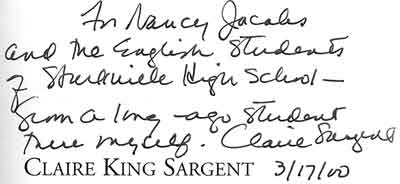 For Nancy Jacobs
and the English Students
of Starkville High School —
from a long-ago student
there myself. Claire Sargent
CLAIRE KING SARGENT 3/17/00